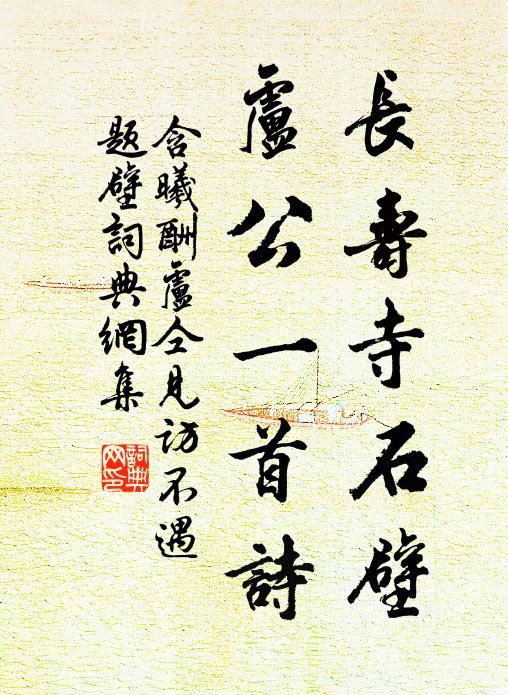 長壽寺石壁
盧公一首詩
含曦酬盧仝見訪不遇
題壁詞典網集
詞典網印